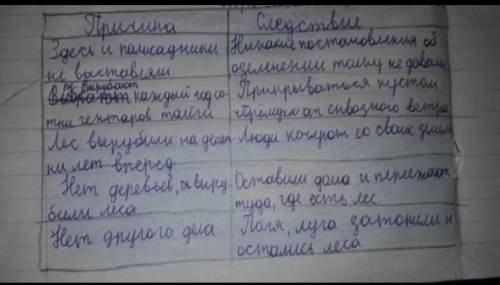 Причина
Следствие
Здесь и палисадники
не выставляли
Никакие постановления об
озеленении толку не давали
Вырубают
каждый год со-
тни гектаров тайги
Прикрываться кустом
черемухи от сквозного ветра
Лес вырубили на десят-
ки лет вперёд
Люди кочуют со своих земель
Нет деревьев, выру-
били леса
Оставили дома и переезжают
туда, где есть лес.
Нет другого дела
Поля, луга затопили и
остались леса